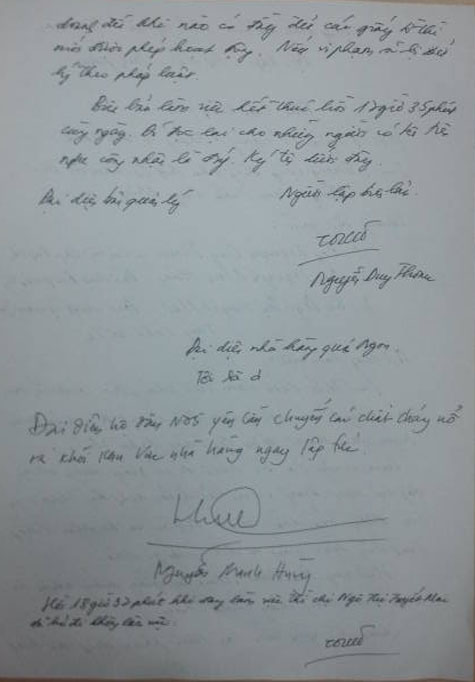 đúng đến khi nào có đầy đủ các giấy tờ thì
mới được phép hoạt động. Nếu vi phạm sẽ bị xử
lý theo pháp luật.
Biên bản làm việc kết thúc hồi 17 giờ 35 phút
cùng ngày. Đã đọc lại cho những người có tên trên
nghe công nhận là đúng. Ký tên dưới đây.
Đại diện ban quản lý
Người lập biên bản
Nguyễn Duy
Đại diện nhà hàng quá Ngon.
Đại diện hộ dân N05 yêu cầu chuyển các chất cháy nổ
ra khỏi khu vực nhà hàng ngay lập tức.
Nguyễn Mạnh Hùng
Hồi 18 giờ 37 phút khi đang làm việc thì chị Ngô Thị Tuyết Mai
đã bỏ đi không làm việc.